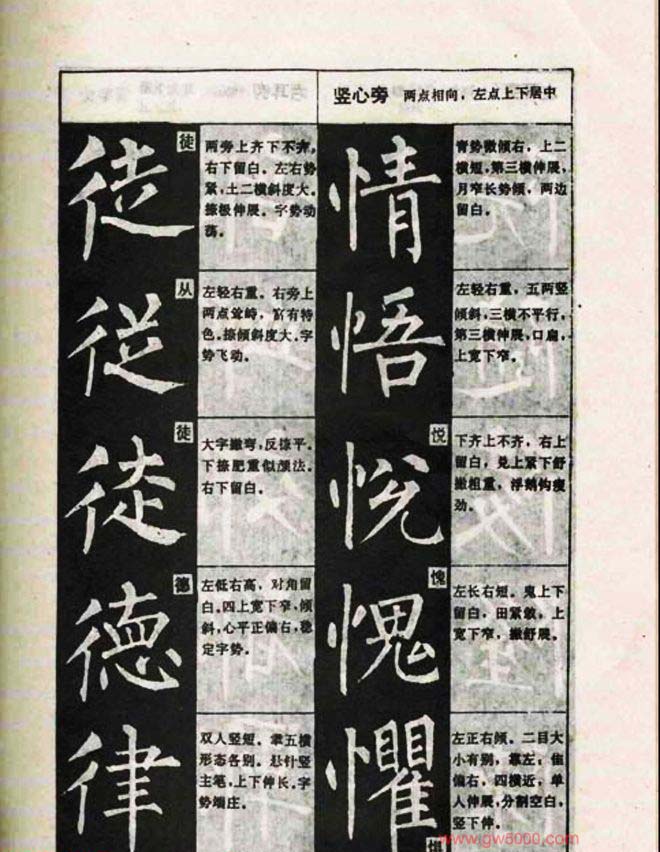 徒
徒
两旁上齐下不齐。
右下留白。左右势
紧,土二横斜度大。
捺极伸展。字势动
荡。
從
从
左轻右重。右旁上
两点耸峙,富有特
色。捺倾斜度大。字
势飞动。
徒
徒
大字撇弯,反捺平。
下捺肥重似颜法。
右下留白。
德
德
左低右高,对角留
白。四上宽下窄,倾
斜,心平正偏右,稳
定字势。
律
双人竖短。聿五横
形态各别。悬针竖
主笔,上下伸长。字
势端庄。
竖心旁 两点相向,左点上下居中
情
青势微倾右,上二
横短,第三横伸展,
月窄长势倾,两边
留白。
悟
左轻右重,五两竖
倾斜,三横不平行,
第三横伸展,口扁,
上宽下窄。
悦
悦
下齐上不齐,右上
留白,兑上紧下舒
撇粗重,浮鹅钩瘦
劲。
愧
愧
左长右短。鬼上下
留白,田紧敛,上
宽下窄,撇舒展。
懼
左正右倾。二目大
小有别,靠左;隹
偏右,四横近,单
人伸展,分割空白,
竖下伸。
www.gw5000.com